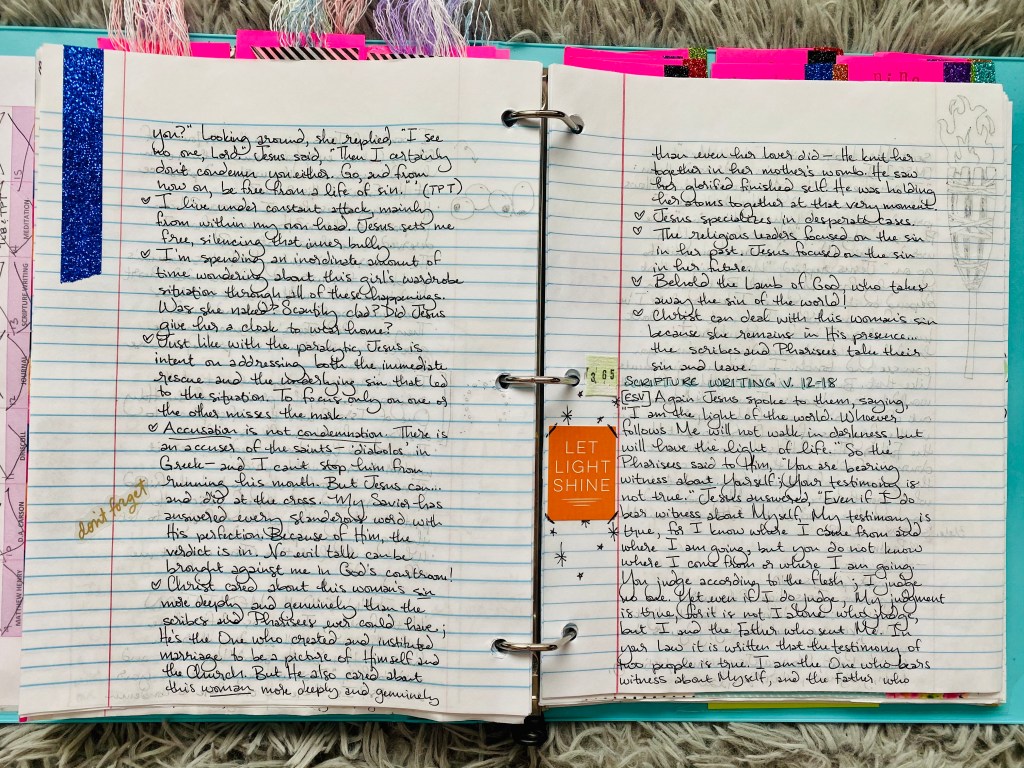 you?" Looking around, she replied, "I see
no one, Lord." Jesus said, "Then I certainly
don't condemn you either. Go, and from
now on, be free from a life of sin." (TPT)
♡ I live under constant attack, mainly
from within my own head. Jesus sets me
free, silencing that inner bully.
♡ I'm spending an inordinate amount of
time wondering about this girl's wardrobe
situation through all of these happenings.
Was she naked? Scantily clad? Did Jesus
give her a cloak to wear home?
♡ Just like with the paralytic, Jesus is
intent on addressing both the immediate
rescue and the underlying sin that led
to the situation. To focus only on one or
the other misses the mark...
♡ Accusation is not condemnation. There is
an accuser of the saints - 'diabolos' in
Greek - and I can't stop him from
running his mouth. But Jesus can...
and did at the cross. My Savior has
answered every slanderous word with
His perfection. Because of Him, the
verdict is in. No evil talk can be
brought against me in God's courtroom!
♡ Christ cared about this woman's sin
more deeply and genuinely than the
scribes and Pharisees ever could have;
He's the One who created and instituted
marriage to be a picture of Himself and
the Church. But He also cared about
this woman more deeply and genuinely
don't forget
MEDITATION
15
SCRIPTURE WRITING
3
JOURNAL
DRISCOLL
D.A. CARSON
MATTHEW HENRY
than even her lover did - He knit her
together in her mother's womb. He saw
her glorified finished self. He was holding
her atoms together at that very moment.
♡ Jesus specializes in desperate cases.
♡ The religious leaders focused on the sin
in her past. Jesus focused on the sin
in her future.
♡ Behold the Lamb of God, who takes
away the sin of the world!
♡ Christ can deal with this woman's sin
because she remains in His presence...
the scribes and Pharisees take their
sin and leave.
365
SCRIPTURE WRITING V. 12-18
[ESV] Again Jesus spoke to them, saying,
"I am the light of the world. Whoever
follows Me will not walk in darkness, but
will have the light of life." So the
Pharisees said to Him, "You are bearing
witness about Yourself; Your testimony is
not true." Jesus answered, "Even if I do
bear witness about Myself, My testimony is
true, for I know where I came from and
where I am going, but you do not know
where I come from or where I am going.
You judge according to the flesh; I judge
no one. Yet even if I do judge, My judgment
is true, for it is not I alone who judge,
but I and the Father who sent Me. In
your Law it is written that the testimony of
two people is true. I am the One who bears
witness about Myself, and the Father who
LET
LIGHT
SHINE